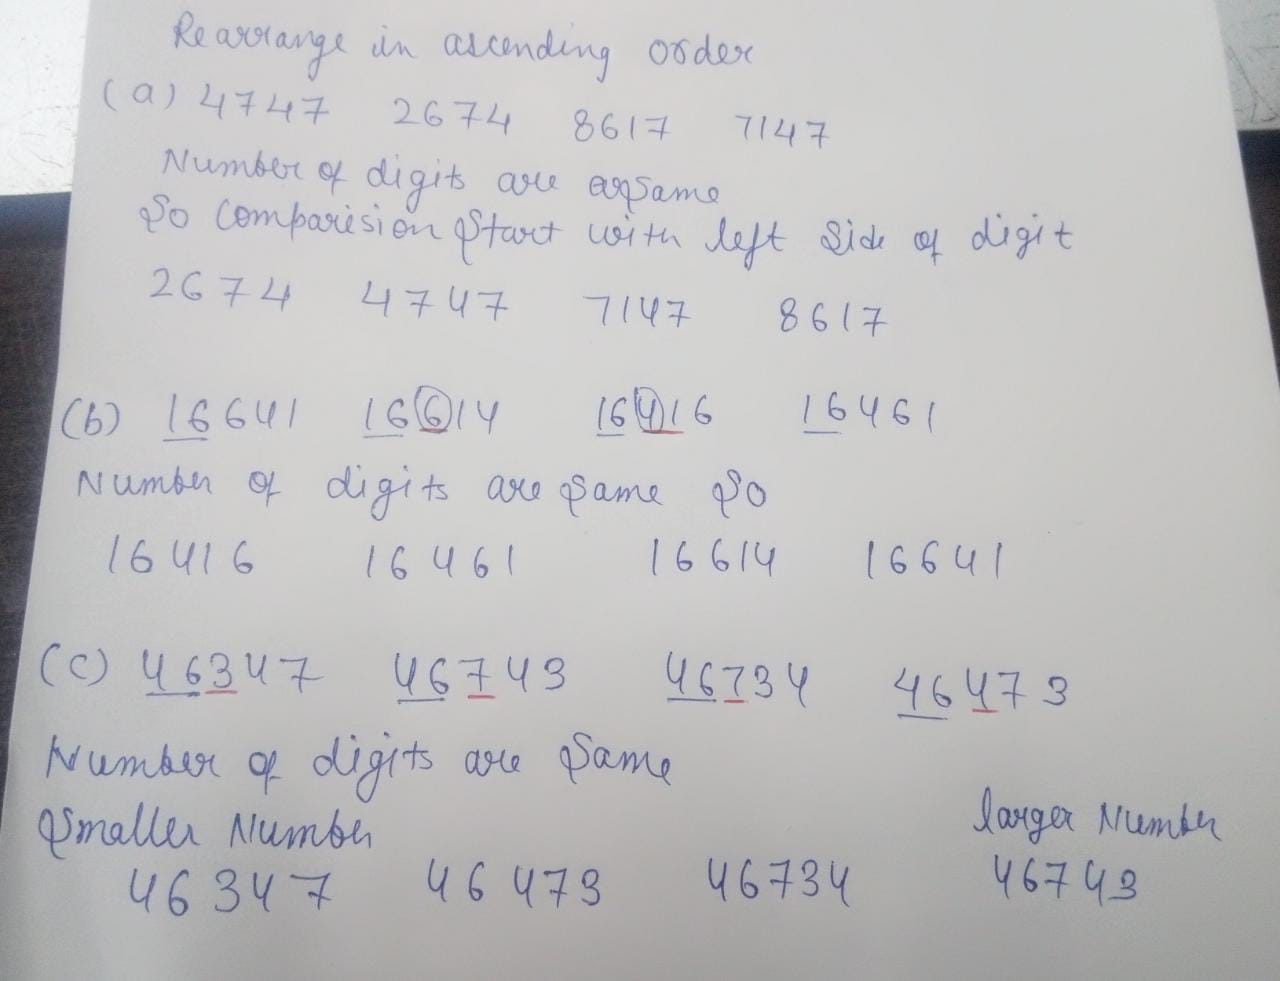 Rearrange in ascending order
(a) 4747 2674 8617 7147
Number of digits are Same
So Comparision Start with left Side of digit
2674 4747 7147 8617
(b) 16641 16614 16416 16461
Number of digits are Same So
16416 16461 16614 16641
(c) 46347 46743 46734 46473
Number of digits are Same
Smaller Number larger Number
46347 46473 46734 46743